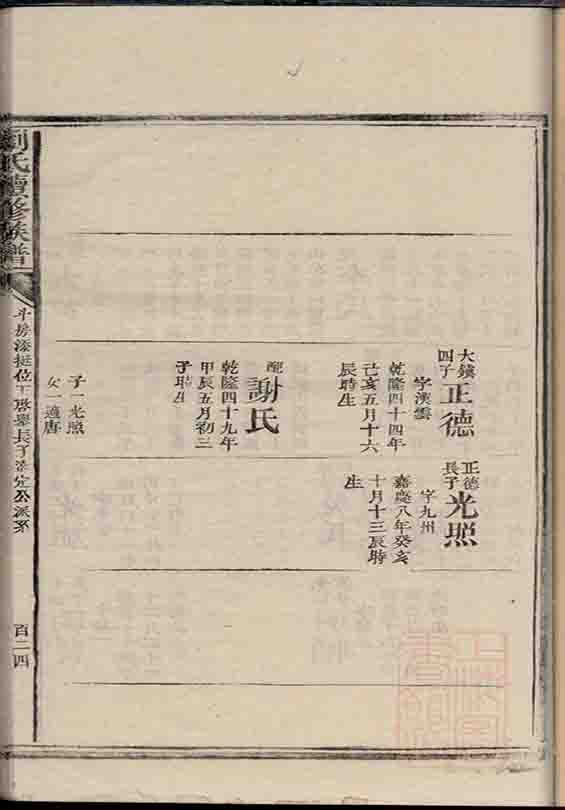 大鎮
四子
正德
字漢雲
乾隆四十四年
己亥五月十六
辰時生
配
謝氏
乾隆四十九年
甲辰五月初三
子時生
子一光照
女一適唐
正德
長子
光照
字九州
嘉慶八年癸亥
十月十三辰時
生
劉氏續修族譜
斗房
挺位
長子
公派系
百二四